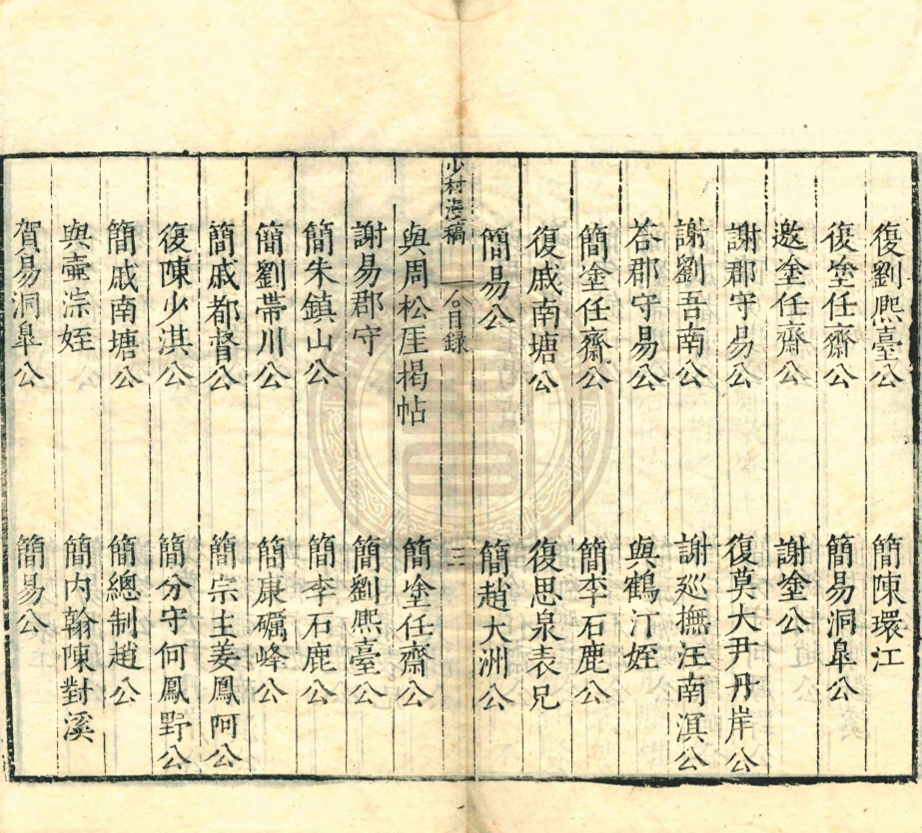 復劉熈臺公　簡陳環江
復塗任齋公　簡易洞臯公
邀塗任齋公　謝塗公
謝郡守易公　復莫大尹丹岸公
謝劉吾南公　謝廵撫汪南溟公
荅郡守易公　與鶴汀姪
簡塗任齋公　簡李石鹿公
復戚南塘公　復思泉表兄
簡易公　簡趙大洲公
少村漫稿　目録　二
與周松厓掲帖　簡塗任齋公
謝易郡守　簡劉熈臺公
簡朱鎮山公　簡李石鹿公
簡劉帶川公　簡康礪峰公
簡戚都督公　簡宗主姜鳳阿公
復陳少淇公　簡分守何鳳野公
簡戚南塘公　簡總制趙公
與壷淙姪　簡内翰陳對溪
賀易洞臯公　簡易公